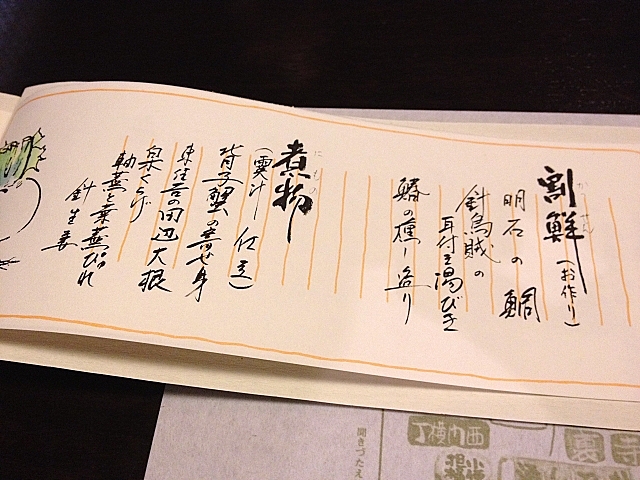 かっせん
割鮮（お作り）
明石の鯛
針烏賊の
耳付き湯びき
鰆の焦し造り
にもの
煮物
（霙汁仕立）
背子蟹の寄せ身
東住吉の田辺大根
泉くらげ
軸蕪と葉蕪ぴれ
針生姜
聞きづたえ
丁横内西
裏寺